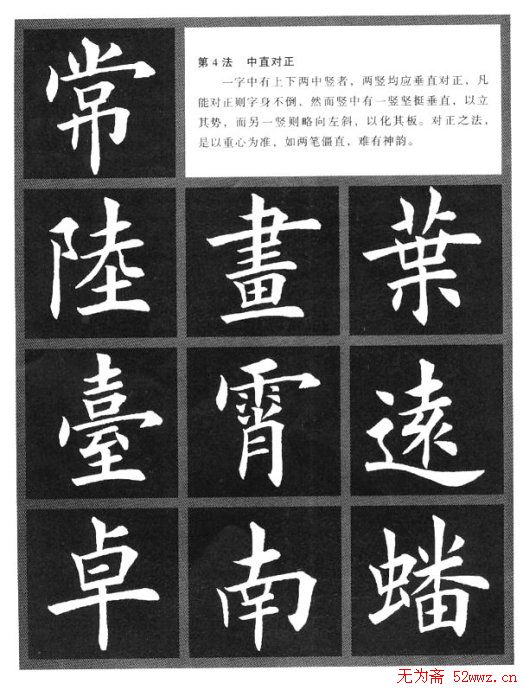 常
第4法 中直对正
一字中有上下两中竖者，两竖均应垂直对正，凡
能对正则字身不倒，然而竖中有一竖坚挺垂直，以立
其势，而另一竖则略向左斜，以化其板。对正之法，
是以重心为准，如两笔僵直，难有神韵。
陸 畫 葉
臺 霄 遠
卓 南 蟠
无为斋 52wwz.cn